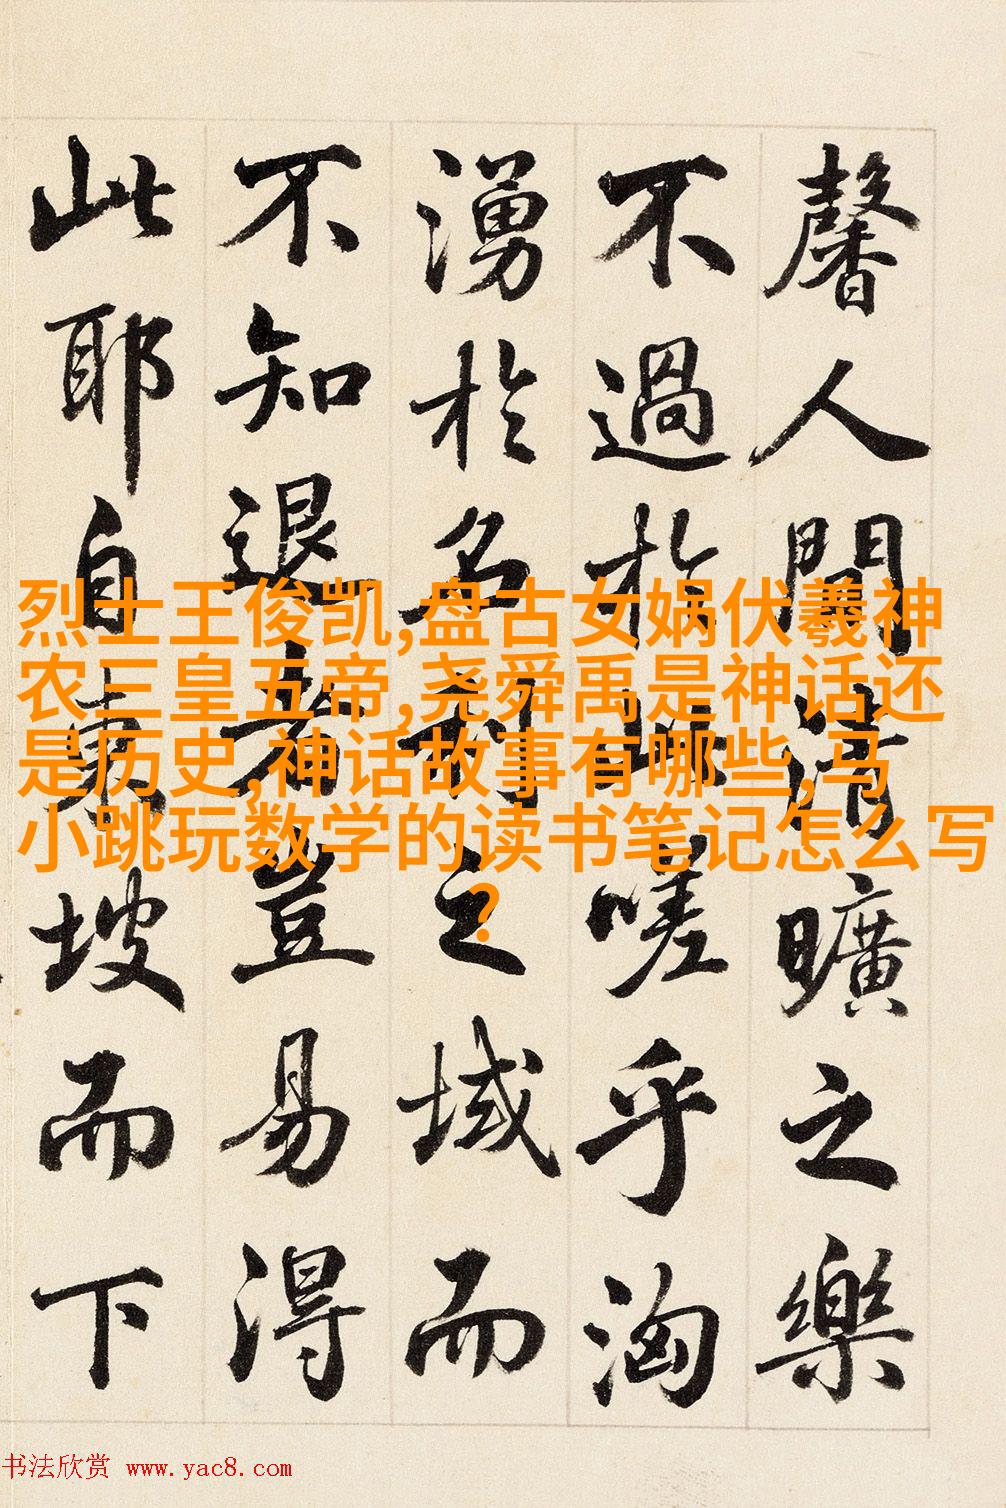 馨人間清曠之樂
不過於嗟乎洶
湧於名利之域而
不知退者豈易得
此耶自東坡而下
烈士王俊凯,盘古女娲伏羲神
农三皇五帝,尧舜禹是神话还
是历史,神话故事有哪些,马
小跳玩数学的读书笔记怎么写
?
书法欣赏 www.yac8.com